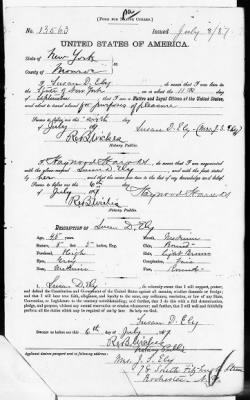 [FORM FOR NATIVE CITIZEN.]
No. 13563 Issued July 8/87
UNITED STATES OF AMERICA.
State of New York
County of Monroe
I, Susan D. Ely, do swear that I was born in the
State of New York on or about the 11th day
of September
that I am a Native and Loyal Citizen of the United States,
and about to travel for purposes of pleasure
Sworn to before me this sixth day
of July
Susan D. Ely
Notary Public.
I, Haywood Hawks
the above named Susan D. Ely
her
Sworn to before me this 6th day
of July
Haywood Hawks
Notary Public.
DESCRIPTION OF Susan D. Ely
Age: 48 years Mouth: Medium
Stature: 5 feet 5 inches, Eng. Chin: Round
Forehead: High Hair: Light Brown
Eyes: Gray Complexion: Fair
Nose: Medium Face: Round
I, Susan D. Ely, do solemnly swear that I will support, protect,
and defend the Constitution and Government of the United States against all enemies, whether domestic or foreign;
and that I will bear true faith, allegiance, and loyalty to the same, any ordinance, resolution, or law of any State,
Convention, or Legislature to the contrary notwithstanding; and further, that I do this with a full determination,
pledge, and purpose, without any mental reservation or evasion whatsoever; and further, that I will well and faithfully
perform all the duties which may be required of me by law. So help me God.
Susan D. Ely
Sworn to before me this 6th day of July
Notary Public
Applicant desires passport sent to following address:
Mrs. J. S. Ely
78 South Fitzhugh Street
Rochester N.Y.